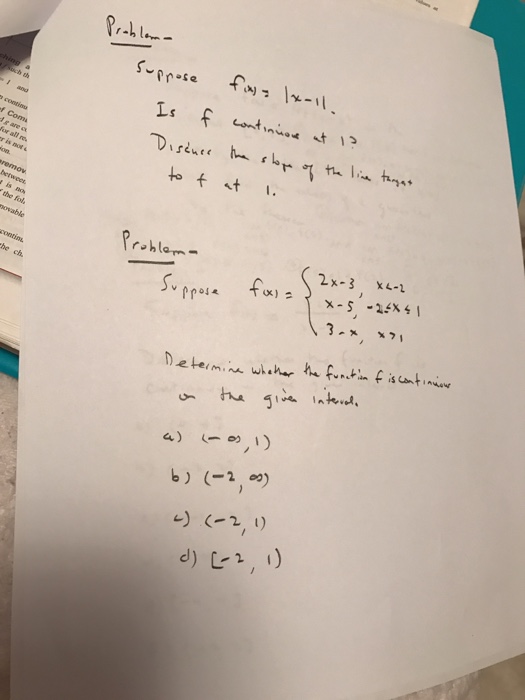 Problem-
Suppose f(x) = |x-1|.
Is f continuous at 1?
Discuss the slope of the line tangent
to f at 1.
Problem-
Suppose f(x) = { 2x-3, x<-2
x-5, -2≤x≤1
3-x, x>1
Determine whether the function f is continuous
on the given interval.
a) (-∞, 1)
b) (-2, ∞)
c) (-2, 1)
d) [-2, 1)